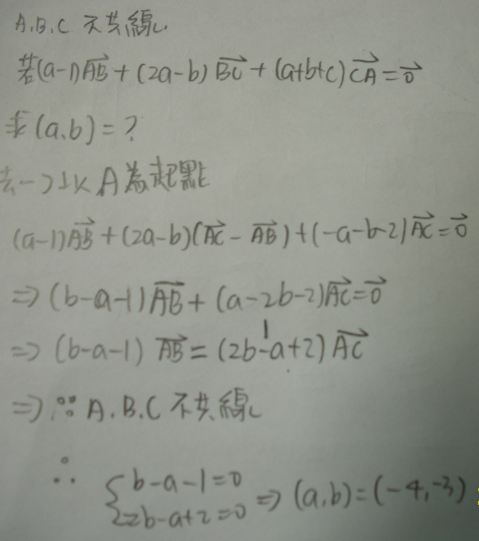 A.B.C 不共線
若(a-1)AB + (2a-b)BC + (a+b+c)CA = 0
求(a.b) = ?
法一) 以A為起點
(a-1)AB + (2a-b)(AC - AB) + (-a-b-2)AC = 0
⇒ (b-a-1)AB + (a-2b-2)AC = 0
⇒ (b-a-1) AB = (2b-a+2)AC
⇒ ∵ A.B.C 不共線
∴ { b-a-1=0
2b-a+2=0 ⇒ (a,b) = (-4,-3)